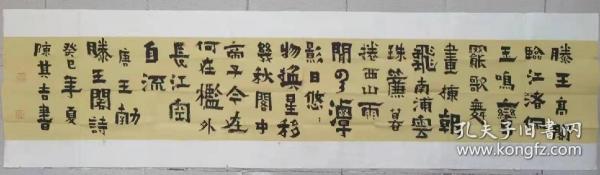 滕王高閣
臨江渚佩
玉鳴鸞
罷歌舞
畫棟朝
飛南浦雲
珠簾暮
捲西山雨
閒雲潭
影日悠〻
物換星移
幾秋閣中
帝子今在
何在檻外
長江空
自流
唐王勃
滕王閣詩
癸巳年夏
陳其吉書
孔夫子旧书网
www.kongfz.com